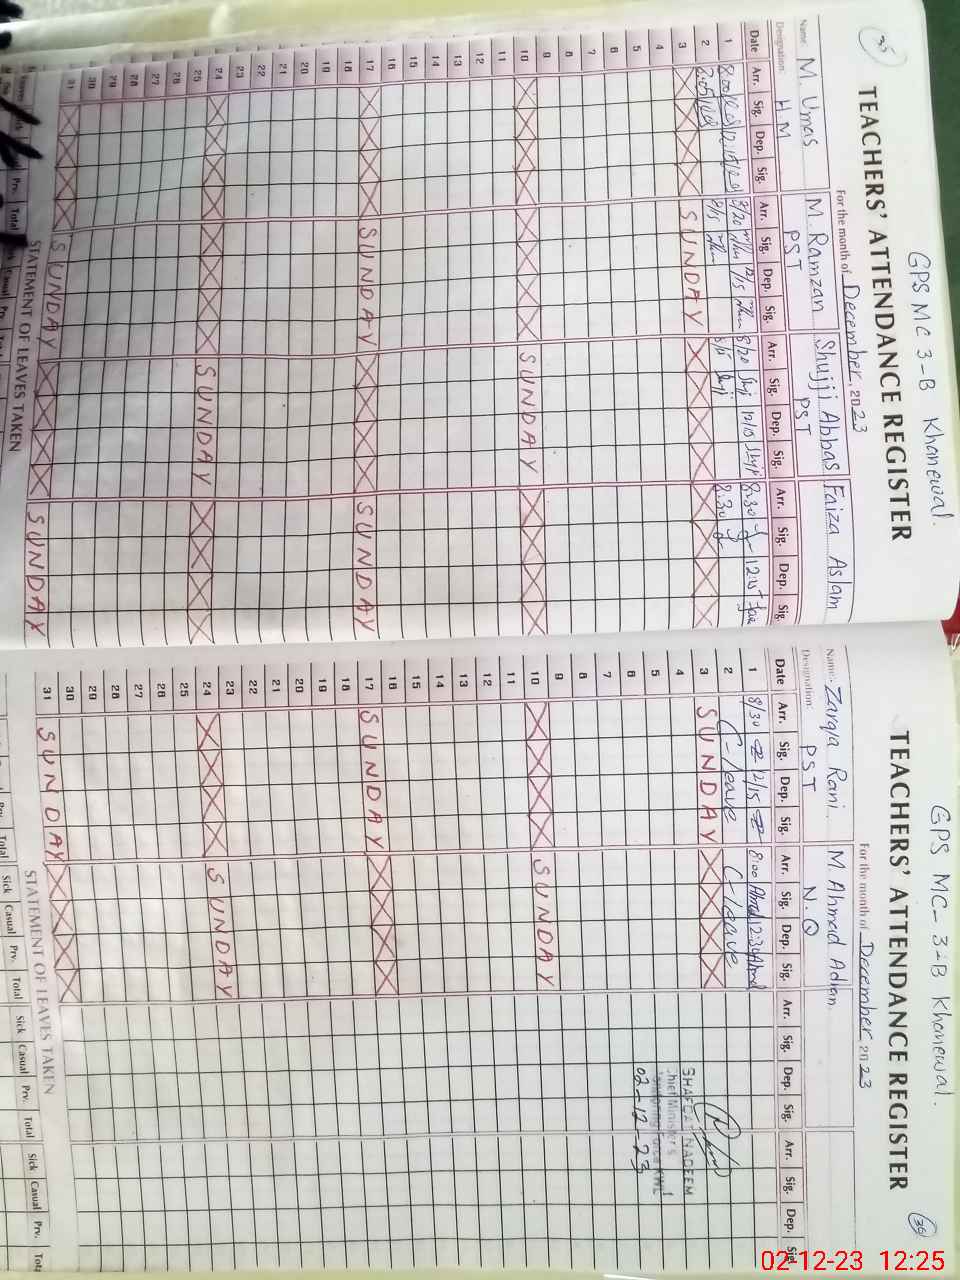 GPS MC 3-B Khanewal.
35
TEACHERS' ATTENDANCE REGISTER
For the month of December, 2023
Name: M. Umas M. Ramzan Shujji Abbas Faiza Aslam
Designation H.M PST PST
Date Arr. Sig. Dep. Sig. Arr. Sig. Dep. Sig. Arr. Sig. Dep. Sig. Arr. Sig. Dep. Sig.
1 8:00 12:15 8/20 12/15 8/20 Shuji 12/15 Shuji 8:30 12:15
2 8:05 8/15 8/15 Shuji 8:30
3 SUNDAY
4
5
6
7
8
9
10 SUNDAY
11
12
13
14
15
16
17 SUNDAY SUNDAY
18
19
20
21
22
23
24 SUNDAY
25
26
27
28
29
30
31 SUNDAY SUNDAY
STATEMENT OF LEAVES TAKEN
Prv. Total
GPS MC-3-B Khanewal.
36
TEACHERS' ATTENDANCE REGISTER
For the month of December 2023
Name: Zarqia Rani. M. Ahmad Adnan.
Designation: PST N.Q
Date Arr. Sig. Dep. Sig. Arr. Sig. Dep. Sig. Arr. Sig. Dep. Sig. Arr. Sig. Dep. Sig.
1 8/30 12/15 8:00 Ahmad 12:30 Ahmad
2 C-leave C-leave
3 SUNDAY
4
5
6
7
8
9
10 SUNDAY
11
12
13
14
15
16
17 SUNDAY
18
19
20
21
22
23
24 SUNDAY
25
26
27
28
29
30
31 SUNDAY
SHAFQAT NADEEM
Chief Minister's
Monitoring Force KWL
02-12-23
STATEMENT OF LEAVES TAKEN
Total Sick Casual Prv. Total Sick Casual Prv. Total Sick Casual Prv.
02-12-23 12:25